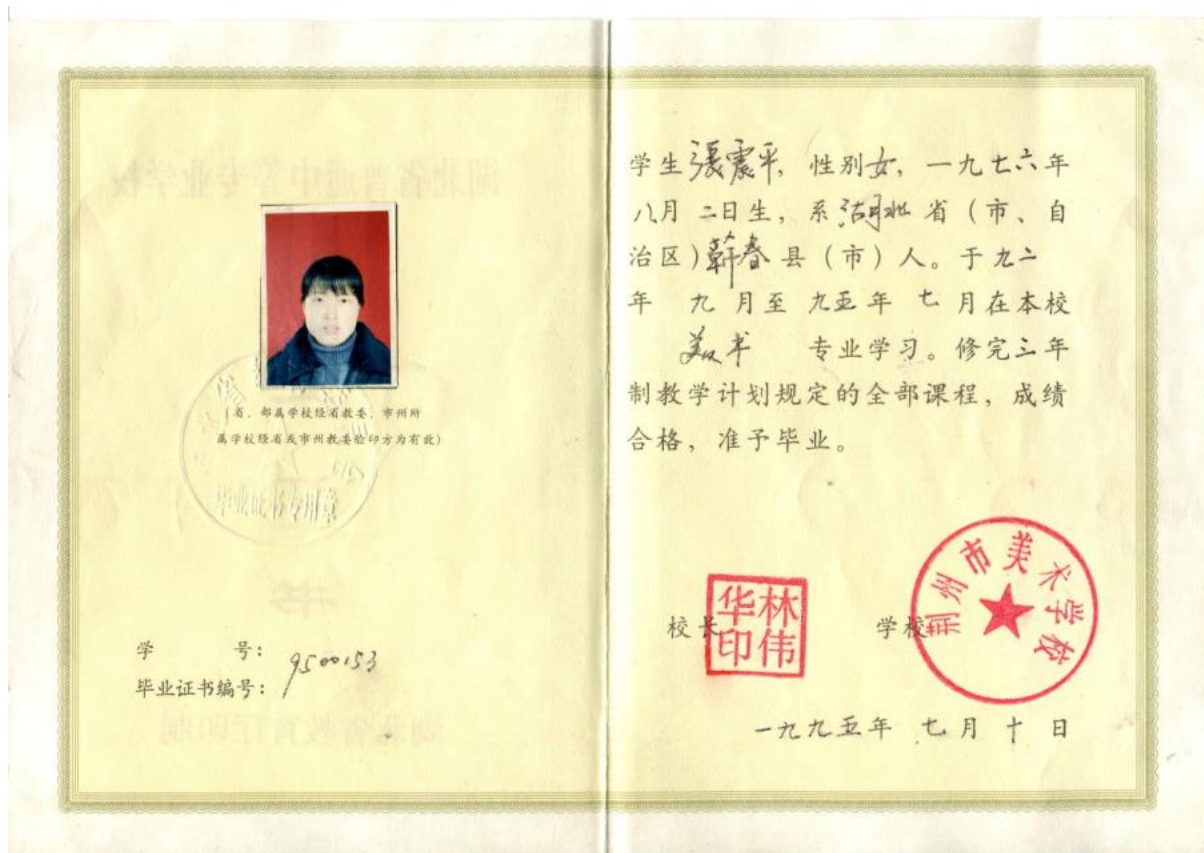 (省、部属学校经省教委、市州所
属学校经省或市州教委验印方为有效)
毕业证书专用章
学 号:
毕业证书编号: 9500153
学生張震平, 性别女, 一九七六年
八月 二日生, 系湖北 省 (市、自
治区) 蕲春 县 (市) 人。于 九二
年 九 月至 九五 年 七 月在本校
美术 专业学习。修完三年
制教学计划规定的全部课程, 成绩
合格, 准予毕业。
校长 林伟华印 学校 荆州市美术学校
一九九五年 七 月 十 日